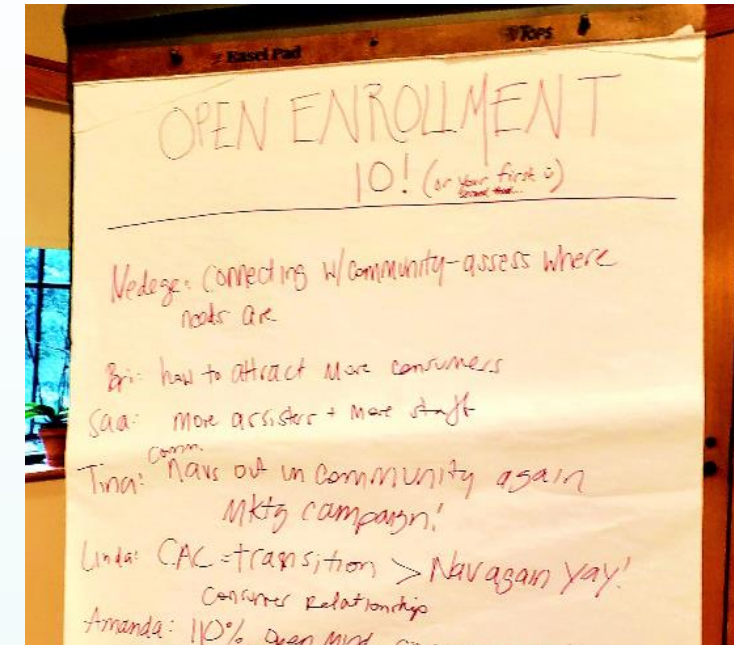 Easel Pad
TOPS
OPEN ENROLLMENT
10! (or your first
Nedege: Connecting w/community-assess where
needs are
Bri: how to attract more consumers
Saa: more assisters + more staff
comm.
Tina: navs out in community again
Mktg campaign!
Linda: CAC = transition > Nav again yay!
Consumer Relationship
Amanda: 110% open mind